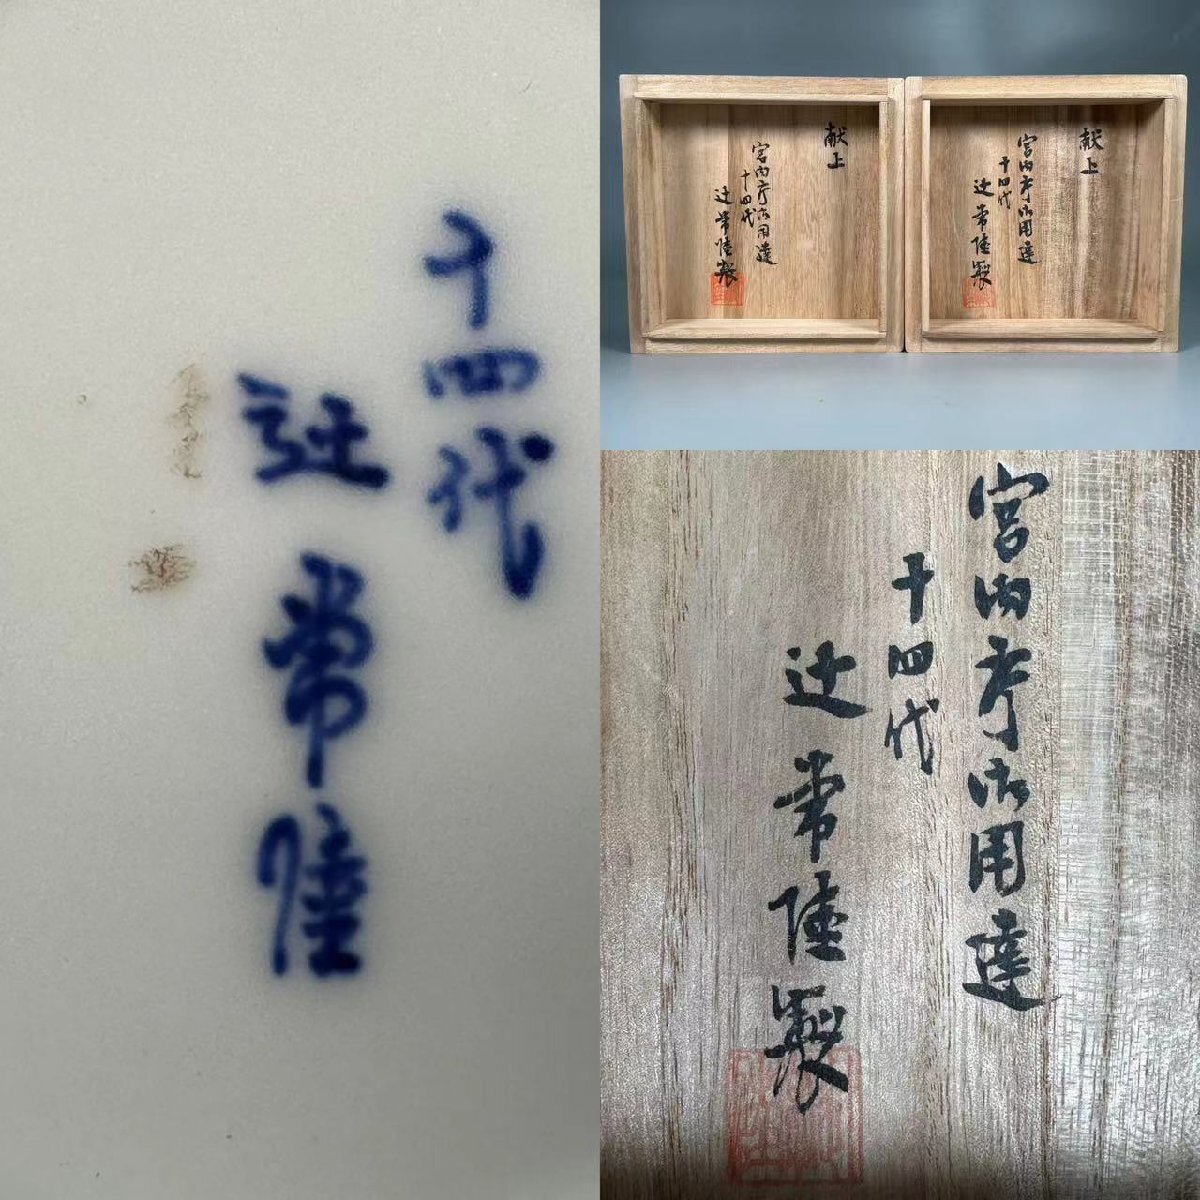 十四代
辻常陸
献上
宮内庁御用達
十四代
辻常陸製
献上
宮内庁御用達
十四代
辻常陸製
宮内庁御用達
十四代
辻常陸製